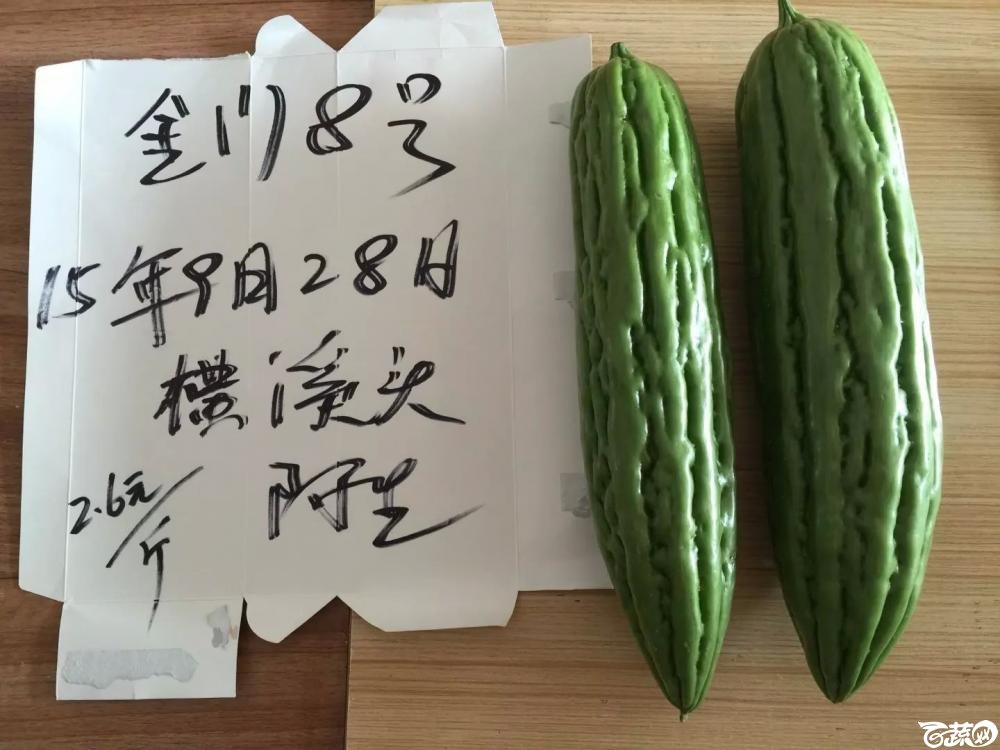 金门8号
15年9月28日
横溪头
阿生
2.6元/斤
百蔬网